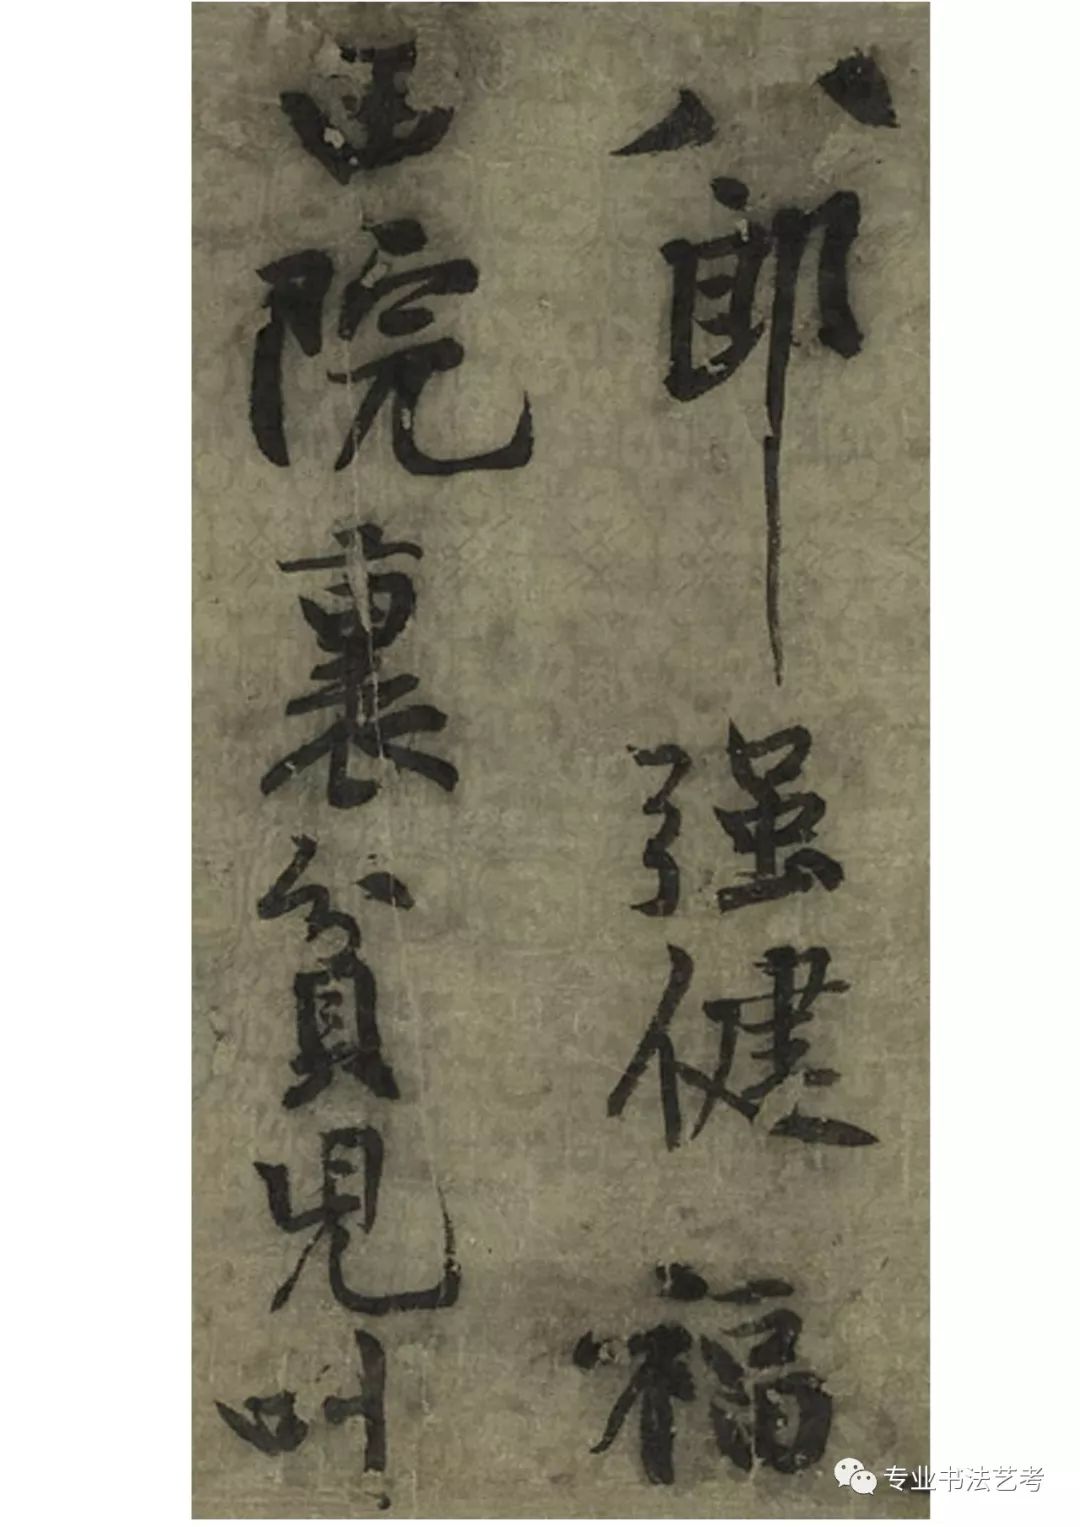 八郎强健福
田院裏貧兒叫
专业书法艺考